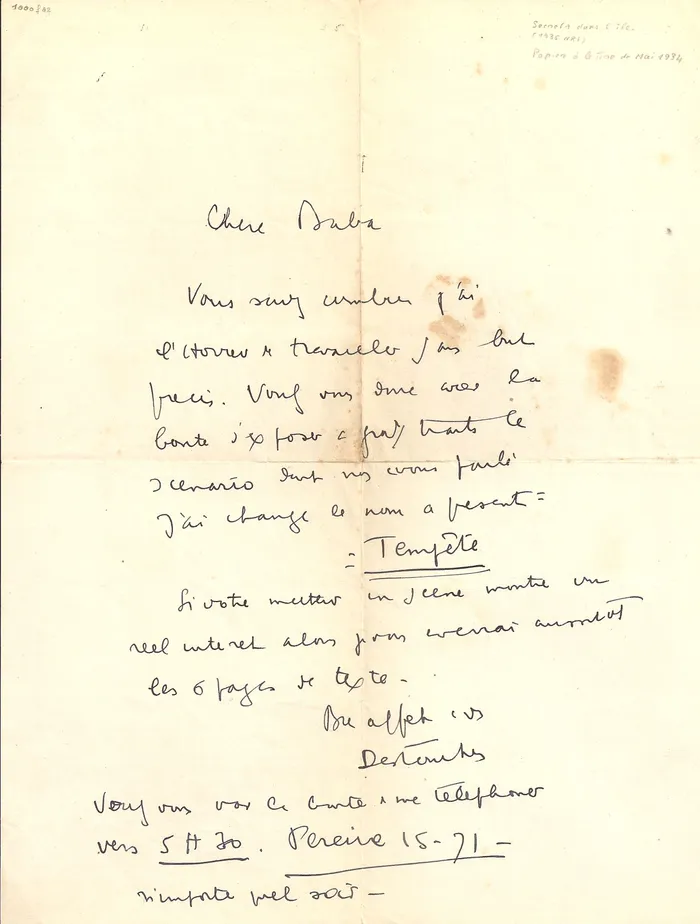 1000 f
(1935 NRF)
Papier à la Tino de Mai 1934
Chere Baba
Vous savez combien j'ai
l'horreur de travailler sans but
precis. Voulez vous donc avoir la
bonté d'exposer a grds traits le
scenario dont nous avons parlé
J'ai change le nom a present =
= Tempête
Si votre metteur en scene montre un
reel interet alors je vous enverrai aussitôt
les 6 pages de texte -
Destouches
Voulez vous avoir la bonté de me telephoner
vers 5 H 30. Pereire 15-71 -
n'importe quel soir -